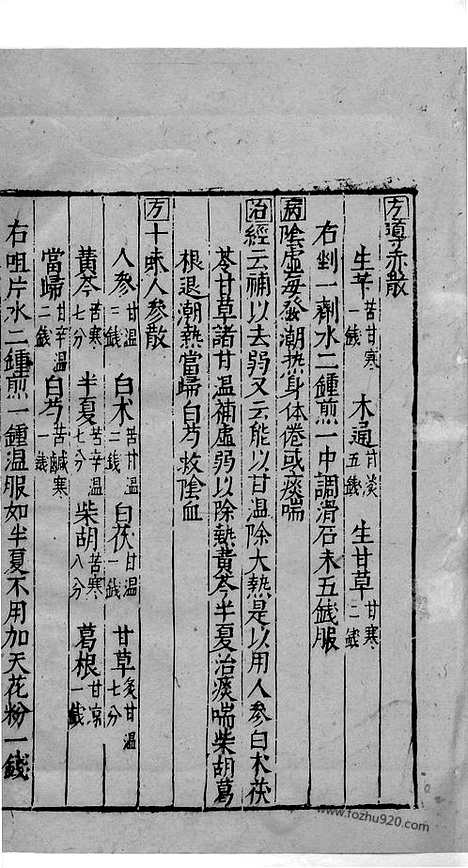 方導赤散
生芐苦甘寒一錢 木通甘淡五錢 生甘草甘寒二錢
右剉一劑水二鍾煎一中調滑石末五錢服
病陰虛每發潮热身体倦或痰喘
治經云補以去弱又云能以甘温除大熱是以用人參白朮茯
苓甘草諸甘温補虛弱以除熱黃芩半夏治痰喘柴胡葛
根退潮熱當歸白芍救陰血
方十味人參散
人參甘温二錢 白朮苦甘温二錢 白茯甘温一錢 甘草炙甘温七分
黃芩苦寒七分 半夏苦辛温七分 柴胡苦寒八分 葛根甘凉一錢
當歸甘辛温二錢 白芍苦鹹寒一錢
右咀片水二鍾煎一鍾温服如半夏不用加天花粉一錢
www.fozhu920.com